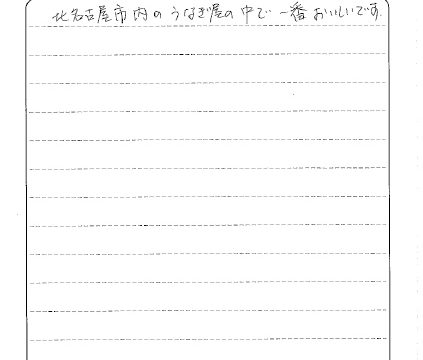 北名古屋市内のうなぎ屋の中で一番おいしいです。